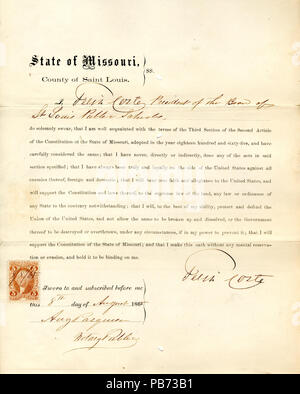 State of Missouri, } SS.
County of Saint Louis.
I, Felix Coste, President of the Board of
St Louis Public Schools
do solemnly swear, that I am well acquainted with the terms of the Third Section of the Second Article
of the Constitution of the State of Missouri, adopted in the year eighteen hundred and sixty-five, and have
carefully considered the same; that I have never, directly or indirectly, done any of the acts in said
section specified; that I have always been truly and loyally on the side of the United States against all
enemies thereof, foreign and domestic; that I will bear true faith and allegiance to the United States, and will
support the Constitution and laws thereof, as the supreme law of the land, any law or ordinance of
any State to the contrary notwithstanding; that I will, to the best of my ability, protect and defend the
Union of the United States, and not allow the same to be broken up and dissolved, or the Government
thereof to be destroyed or overthrown, under any circumstances, if in my power to prevent it; that I will
support the Constitution of the State of Missouri; and that I make this oath without any mental reserva-
tion or evasion, and hold it to be binding on me.
Felix Coste
Sworn to and subscribed before me
this 8th day of August 186
Notary Public
alamy
Image ID: PB73B1
www.alamy.com